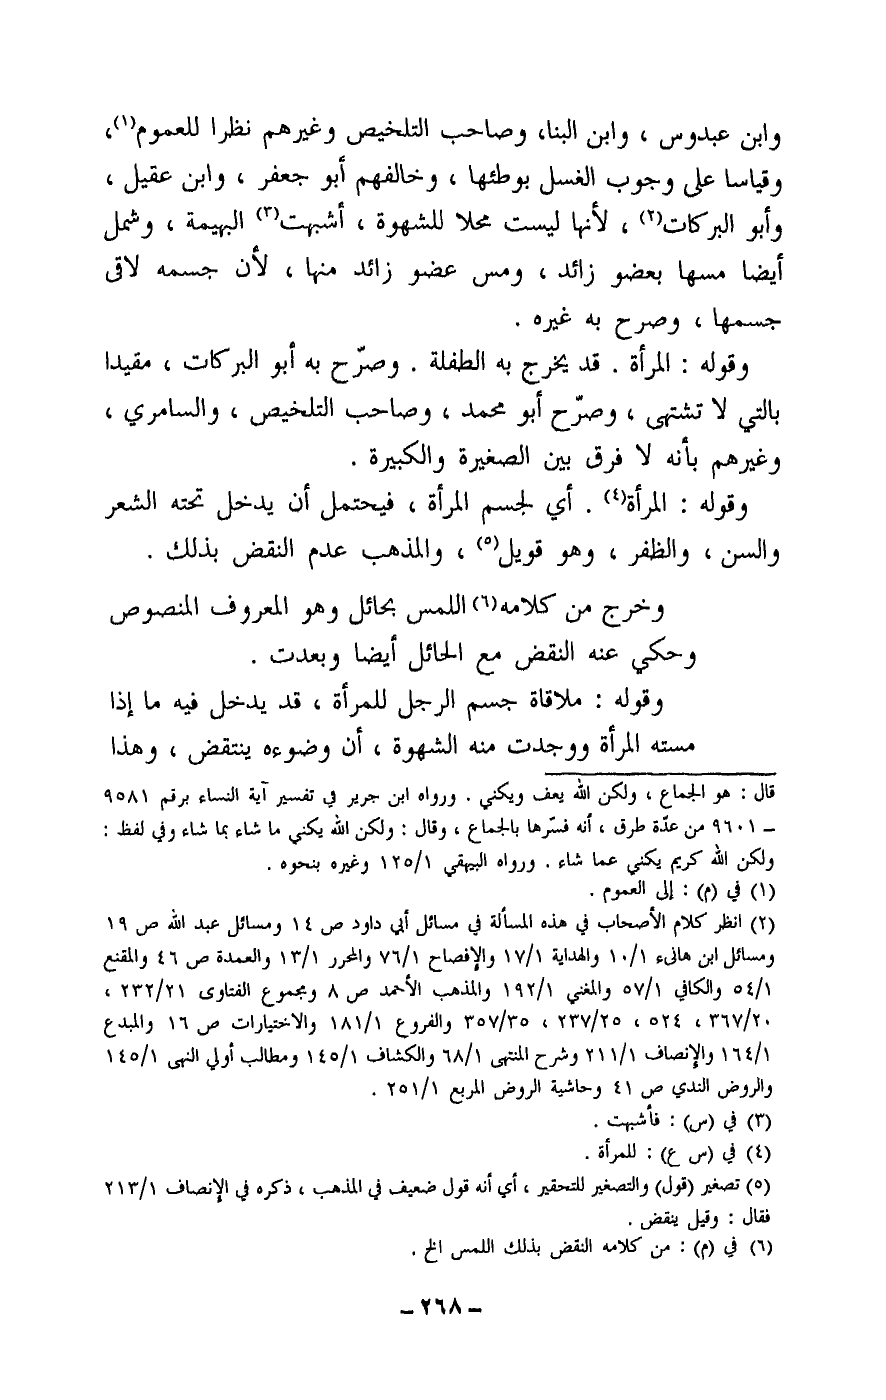 وابن عبدوس ، وابن البنا، وصاحب التلخيص وغيرهم نظرا للعموم(١)،
وقياسا على وجوب الغسل بوطئها ، وخالفهم أبو جعفر ، وابن عقيل ،
وأبو البركات(٢) ، لأنها ليست محلا للشهوة ، أشبهت(٣) البهيمة ، وشمل
أيضا مسها بعضو زائد ، ومس عضو زائد منها ، لأن جسمه لاقى
جسمها ، وصرح به غيره .
وقوله : المرأة . قد يخرج به الطفلة . وصرّح به أبو البركات ، مقيدا
بالتي لا تشتهى ، وصرّح أبو محمد ، وصاحب التلخيص ، والسامري ،
وغيرهم بأنه لا فرق بين الصغيرة والكبيرة .
وقوله : المرأة(٤) . أي لجسم المرأة ، فيحتمل أن يدخل تحته الشعر
والسن ، والظفر ، وهو قويل(٥) ، والمذهب عدم النقض بذلك .
وخرج من كلامه(٦) اللمس بحائل وهو المعروف المنصوص
وحكي عنه النقض مع الحائل أيضا وبعدت .
وقوله : ملاقاة جسم الرجل للمرأة ، قد يدخل فيه ما إذا
مسته المرأة ووجدت منه الشهوة ، أن وضوءه ينتقض ، وهذا
قال : هو الجماع ، ولكن الله يعف ويكني . ورواه ابن جرير في تفسير آية النساء برقم ٩٥٨١
– ٩٦٠١ من عدّة طرق ، أنه فسّرها بالجماع ، وقال : ولكن الله يكني ما شاء بما شاء وفي لفظ :
ولكن الله كريم يكني عما شاء . ورواه البيهقي ١٢٥/١ وغيره بنحوه .
(١) في (م) : إلى العموم .
(٢) انظر كلام الأصحاب في هذه المسألة في مسائل أبي داود ص ١٤ ومسائل عبد الله ص ١٩
ومسائل ابن هانىء ١٠/١ والهداية ١٧/١ والإفصاح ٧٦/١ والمحرر ١٣/١ والعمدة ص ٤٦ والمقنع
٥٤/١ والكافي ٥٧/١ والمغني ١٩٢/١ والمذهب الأحمد ص ٨ ومجموع الفتاوى ٢٣٢/٢١ ،
٣٦٧/٢٠ ، ٥٢٤ ، ٢٣٧/٢٥ ، ٣٥٧/٣٥ والفروع ١٨١/١ والاختيارات ص ١٦ والمبدع
١٦٤/١ والإنصاف ٢١١/١ وشرح المنتهى ٦٨/١ والكشاف ١٤٥/١ ومطالب أولي النهى ١٤٥/١
والروض الندي ص ٤١ وحاشية الروض المربع ٢٥١/١ .
(٣) في (س) : فأشبهت .
(٤) في (س ع) : للمرأة .
(٥) تصغير (قول) والتصغير للتحقير ، أي أنه قول ضعيف في المذهب ، ذكره في الإنصاف ٢١٣/١
فقال : وقيل ينقض .
(٦) في (م) : من كلامه النقض بذلك اللمس الخ .
– ٢٦٨ –